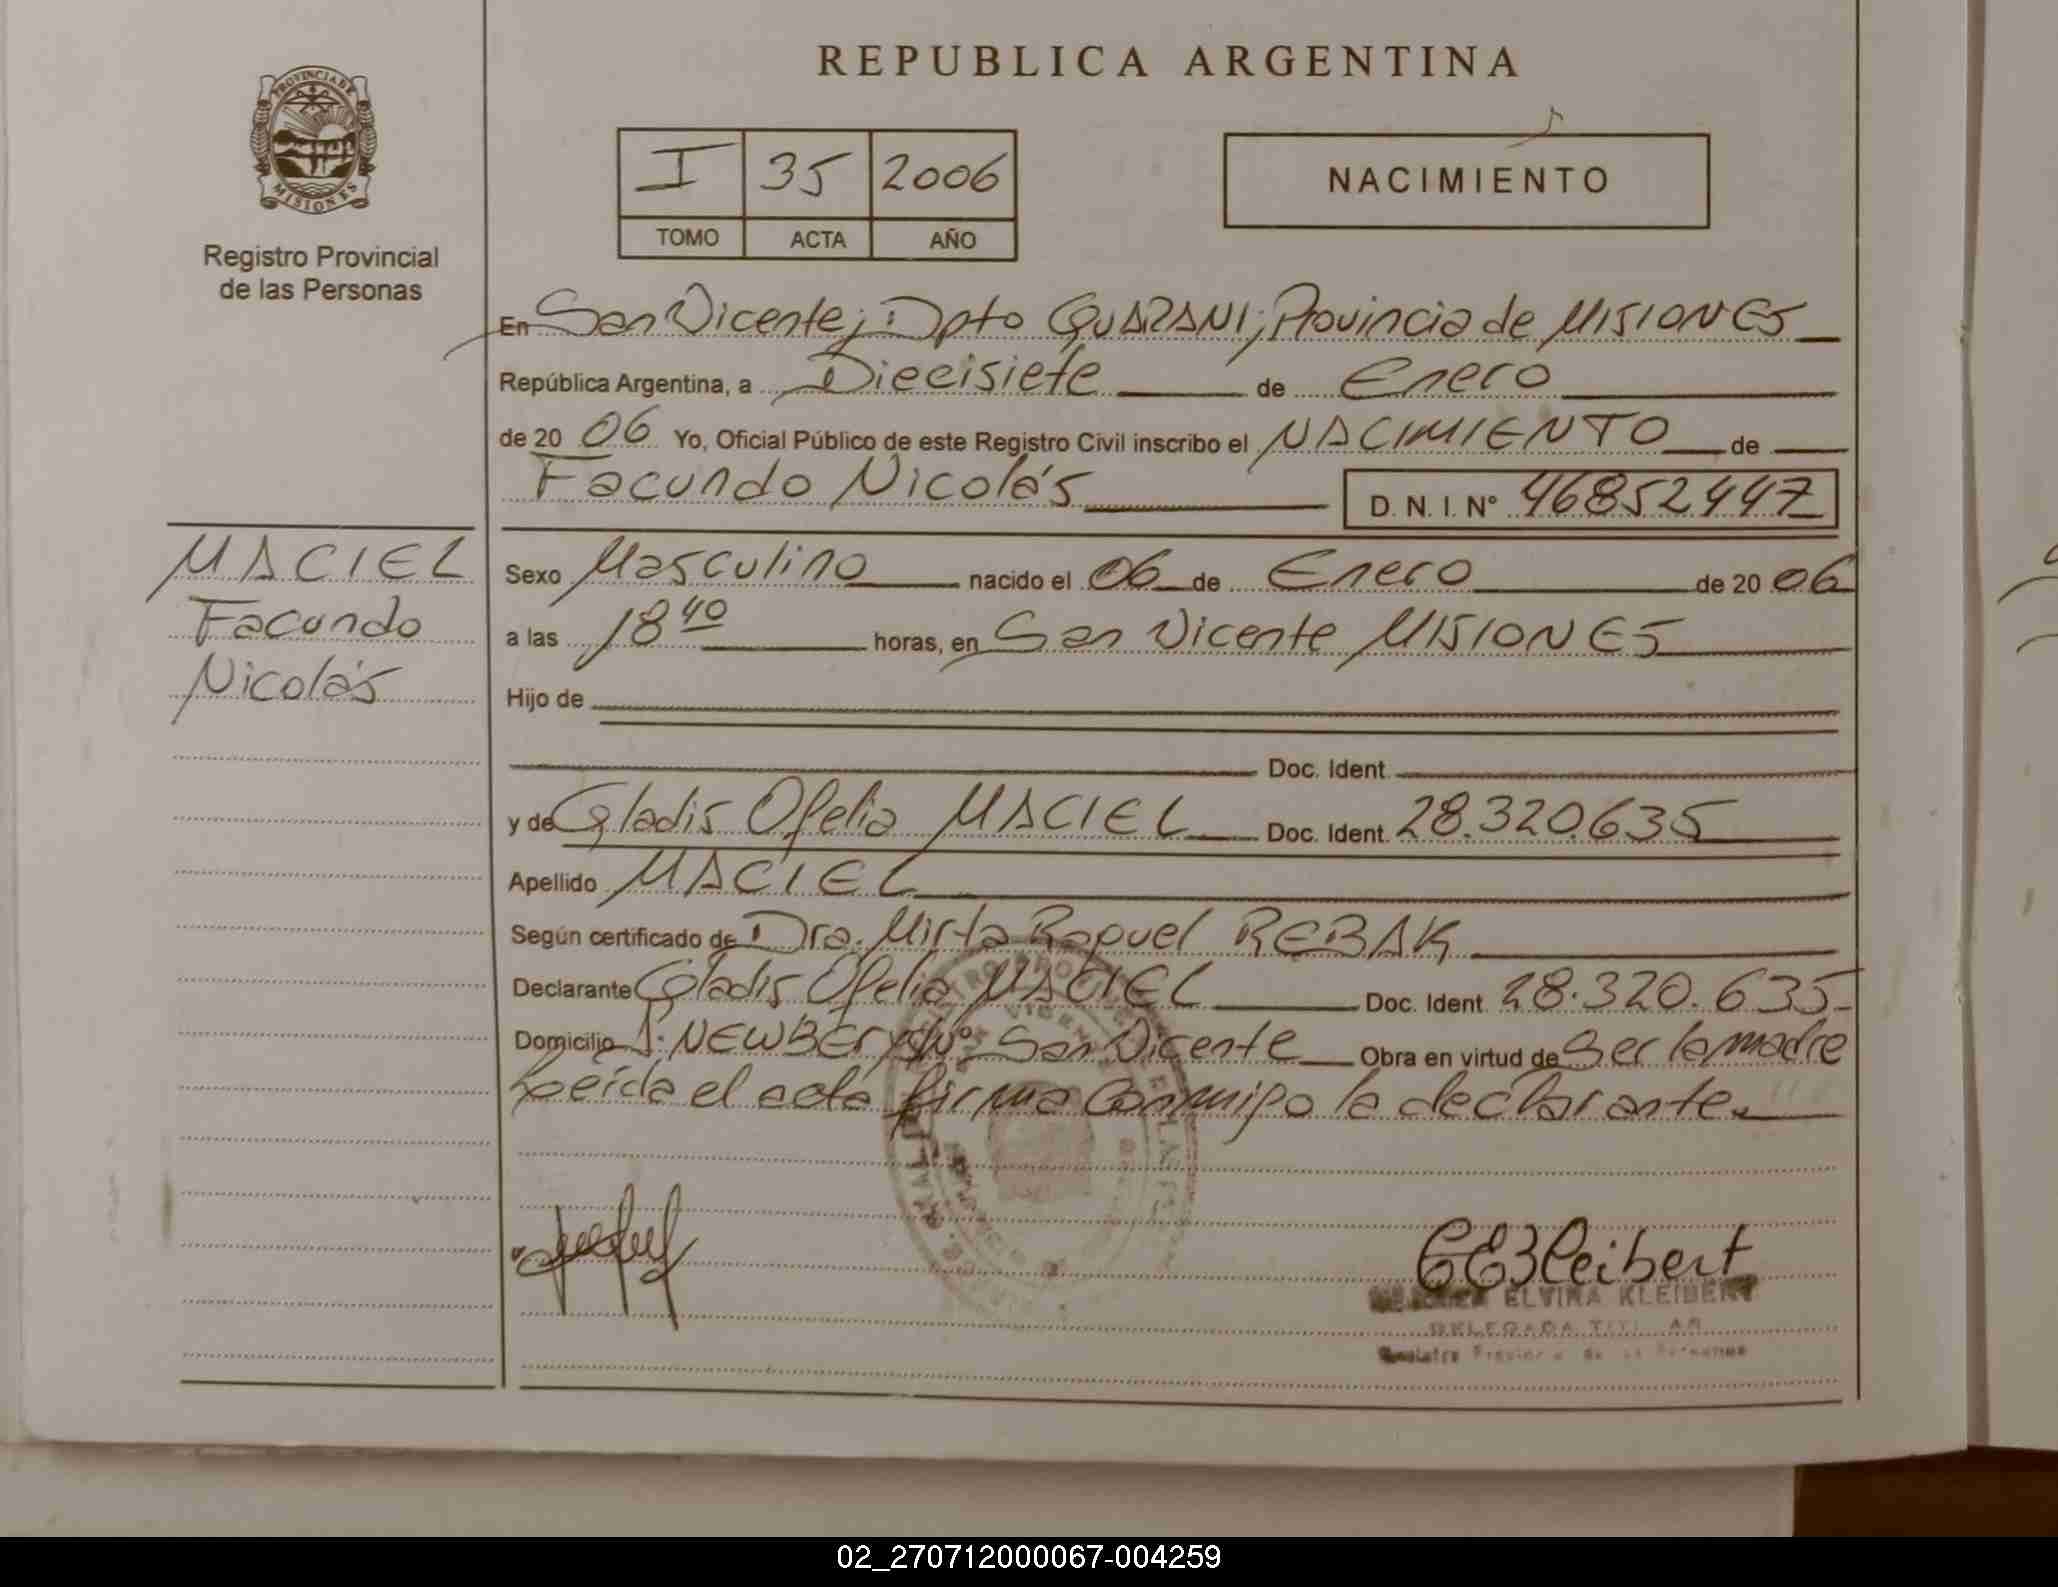 REPUBLICA ARGENTINA
PROVINCIA DE
MISIONES
Registro Provincial
de las Personas
I 35 2006
TOMO ACTA AÑO
NACIMIENTO
En San Vicente; Dpto GUARANI; Provincia de MISIONES
República Argentina, a Diecisiete de Enero
de 20 06 Yo, Oficial Público de este Registro Civil inscribo el NACIMIENTO de
Facundo Nicolás D. N. I. Nº 46852447
MACIEL
Facundo
Nicolás
Sexo Masculino nacido el 06 de Enero de 20 06
a las 18 40 horas, en San Vicente MISIONES
Hijo de
Doc. Ident.
y de Gladis Ofelia MACIEL Doc. Ident. 28.320.635
Apellido MACIEL
Según certificado de Dra. Mirta Raquel REBAK
Declarante Gladis Ofelia MACIEL Doc. Ident. 28.320.635
Domicilio J. NEWBERY S/Nº San Vicente Obra en virtud de Ser la madre
Leída el acta firma conmigo la declarante.
ELVIRA KLEIBERT
DELEGADA TITULAR
Registro Provincial de las Personas
02_270712000067-004259